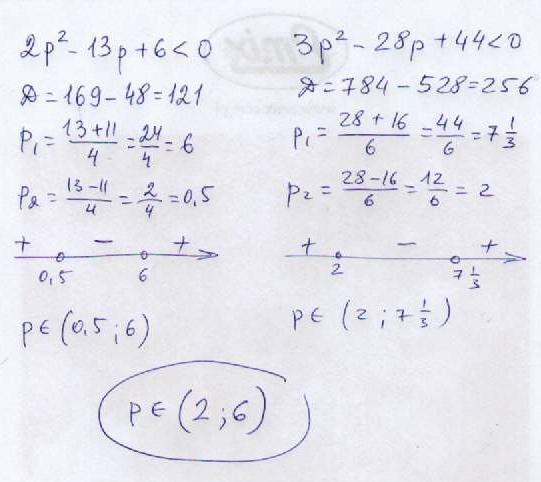 2p² - 13p + 6 < 0
D = 169 - 48 = 121
p₁ = (13 + 11)/4 = 24/4 = 6
p₂ = (13 - 11)/4 = 2/4 = 0,5
+ - +
0,5 6
p ∈ (0,5 ; 6)
3p² - 28p + 44 < 0
D = 784 - 528 = 256
p₁ = (28 + 16)/6 = 44/6 = 7 1/3
p₂ = (28 - 16)/6 = 12/6 = 2
+ - +
2 7 1/3
p ∈ (2 ; 7 1/3)
p ∈ (2 ; 6)